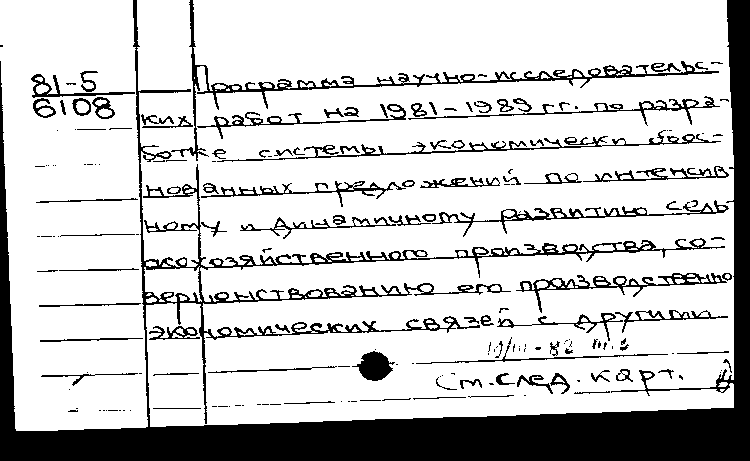 81-5
6108
Программа научно-исследовательс-
ких работ на 1981-1989 гг. по разра-
ботке системы экономически обос-
нованных предложений по интенсив-
ному и динамичному развитию сель-
скохозяйственного производства, со-
вершенствованию его производственно
экономических связей с другими
См. след. карт.